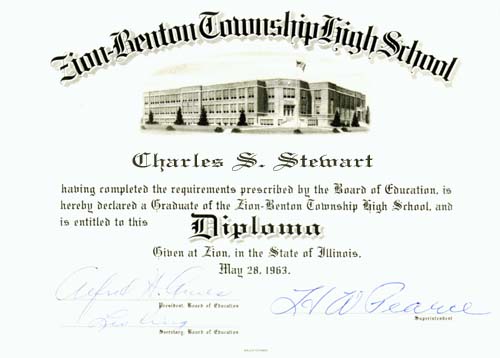 Zion-Benton Township High School
Charles S. Stewart
having completed the requirements prescribed by the Board of Education, is
hereby declared a Graduate of the Zion-Benton Township High School, and
is entitled to this Diploma
Given at Zion, in the State of Illinois,
May 28, 1963.
Alfred H.
President, Board of Education
H W Pearce
Superintendent
Secretary, Board of Education